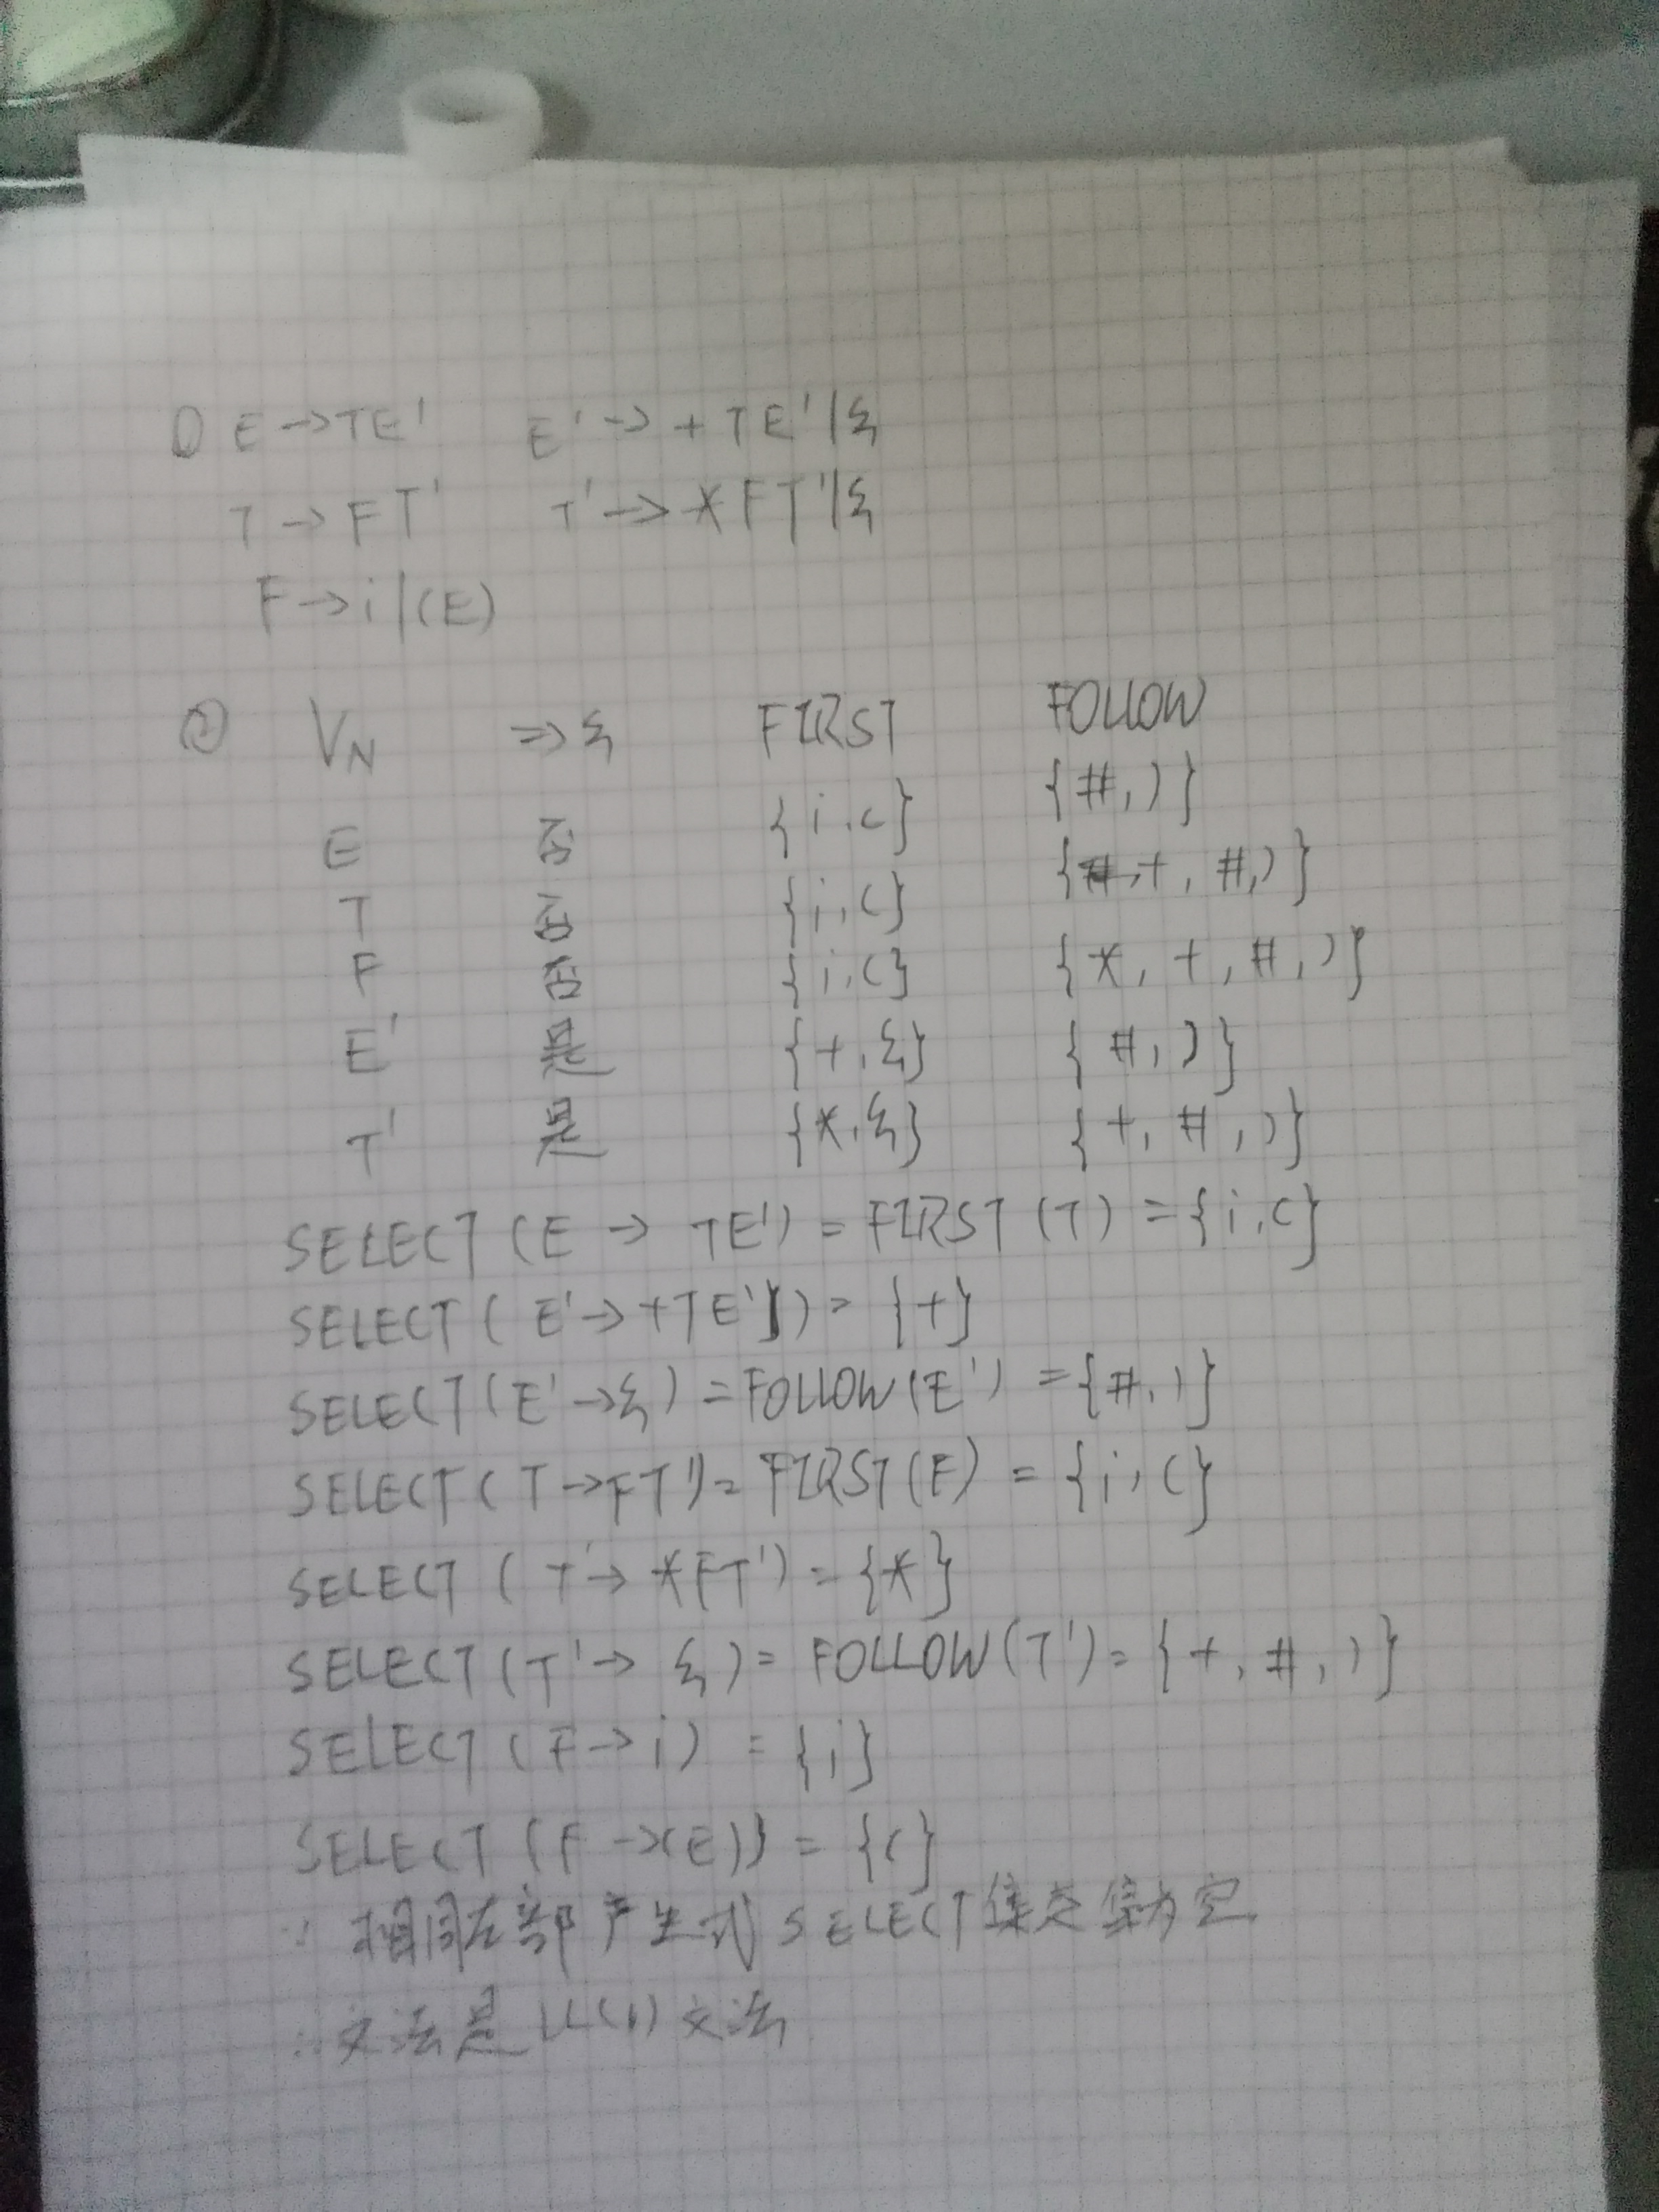 ① E→TE' E'→+TE'|ε
T→FT' T'→*FT'|ε
F→i|(E)
② VN ⇒ε FIRST FOLLOW
E 否 {i,(} {#,)}
T 否 {i,(} {+,#,)}
F 否 {i,(} {*,+,#,)}
E' 是 {+,ε} {#,)}
T' 是 {*,ε} {+,#,)}
SELECT(E→TE')=FIRST(T)={i,(}
SELECT(E'→+TE')={+}
SELECT(E'→ε)=FOLLOW(E')={#,)}
SELECT(T→FT')=FIRST(F)={i,(}
SELECT(T'→*FT')={*}
SELECT(T'→ε)=FOLLOW(T')={+,#,)}
SELECT(F→i)={i}
SELECT(F→(E))={(}
∵相同左部产生式SELECT集交集为空
∴文法是LL(1)文法